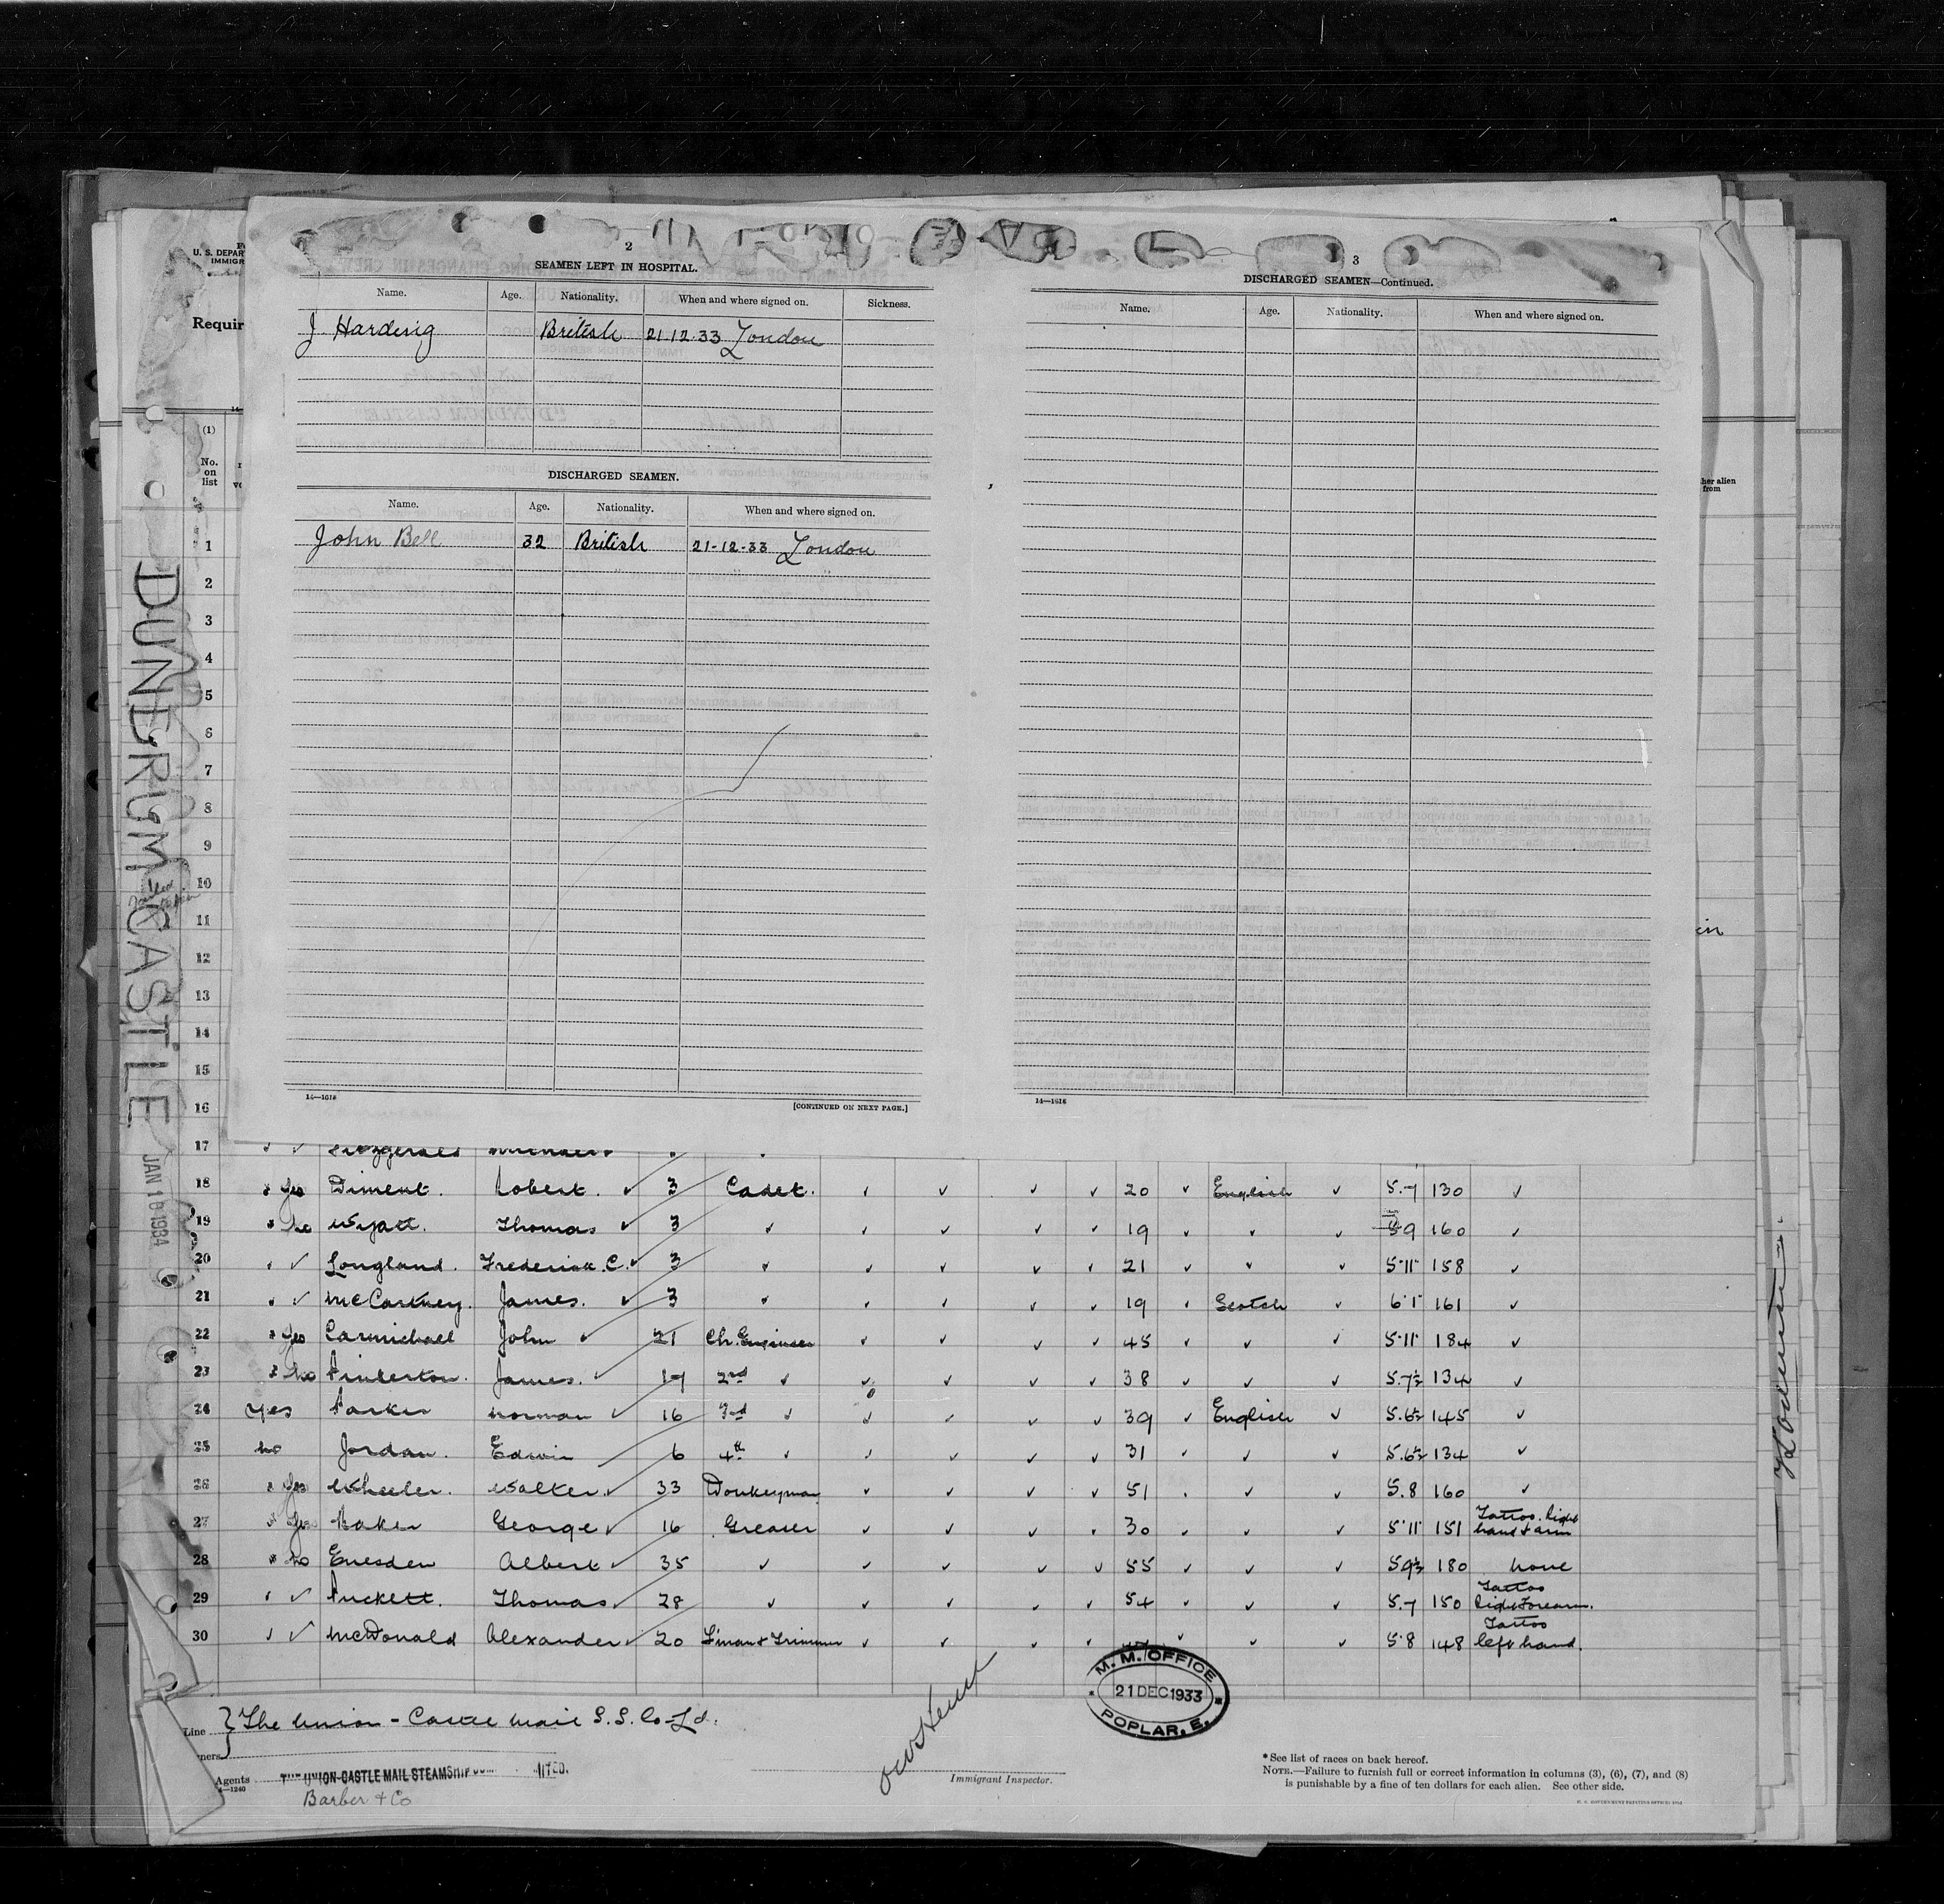 2
SEAMEN LEFT IN HOSPITAL.
Name. Age. Nationality. When and where signed on. Sickness.
J Harding British 21.12.33 London
DISCHARGED SEAMEN.
Name. Age. Nationality. When and where signed on.
John Bell 32 British 21-12-33 London
14—1618
[CONTINUED ON NEXT PAGE.]
3
DISCHARGED SEAMEN—Continued.
Name. Age. Nationality. When and where signed on.
14—1618
U. S. DEPAR
IMMIGR
Requir
(1)
No.
on
list
her alien
from
in
DUNDRUM CASTLE
JAN 10 1934
1
2
3
4
5
6
7
8
9
10
11
12
13
14
15
16
17 ✓ Fitzgerald
18 Yes Diment. Robert. ✓ 3 Cadet. ✓ ✓ ✓ ✓ 20 ✓ English ✓ 5.7 130 ✓
19 No Wyatt. Thomas ✓ 3 ✓ ✓ ✓ ✓ ✓ 19 ✓ ✓ ✓ 5 9 160 ✓
20 ✓ Longland. Frederick. C. ✓ 3 ✓ ✓ ✓ ✓ ✓ 21 ✓ ✓ ✓ 5·11 158 ✓
21 ✓ McCartney. James. ✓ 3 ✓ ✓ ✓ ✓ ✓ 19 ✓ Scotch ✓ 6·1 161 ✓
22 Yes Carmichael John ✓ 21 Ch. Engineer ✓ ✓ ✓ ✓ 45 ✓ ✓ ✓ 5·11 184 ✓
23 No Pinkerton. James. ✓ 17 2nd ✓ ✓ ✓ ✓ ✓ 38 ✓ ✓ ✓ 5.7½ 134 ✓
24 Yes Parker Norman ✓ 16 3rd ✓ ✓ ✓ ✓ ✓ 39 ✓ English ✓ 5.6½ 145 ✓
25 No Jordan. Edwin 6 4th ✓ ✓ ✓ ✓ ✓ 31 ✓ ✓ ✓ 5.6½ 134 ✓
26 Yes Wheeler. Walter. ✓ 33 Donkeyman ✓ ✓ ✓ ✓ 51 ✓ ✓ ✓ 5.8 160 ✓
27 Yes Baker George ✓ 16 Greaser ✓ ✓ ✓ ✓ 30 ✓ ✓ ✓ 5·11 151 Tattoo. Right hand & arm
28 No Albert ✓ 35 ✓ ✓ ✓ ✓ ✓ 55 ✓ ✓ ✓ 5 9½ 180 None
29 ✓ Puckett. Thomas. ✓ 28 ✓ ✓ ✓ ✓ ✓ 54 ✓ ✓ ✓ 5.7 150 Tattoo Right Forearm.
30 ✓ McDonald Alexander ✓ 20 F'man & Trimmer ✓ ✓ ✓ ✓ ✓ ✓ ✓ 5 8 148 Tattoo left hand.
M. M. OFFICE
21 DEC 1933
POPLAR, E.
Line } The Union - Castle Mail S.S. Co. Ld.
ners
Agents THE UNION-CASTLE MAIL STEAMSHIP
Barber & Co
Immigrant Inspector.
*See list of races on back hereof.
NOTE.—Failure to furnish full or correct information in columns (3), (6), (7), and (8)
is punishable by a fine of ten dollars for each alien. See other side.